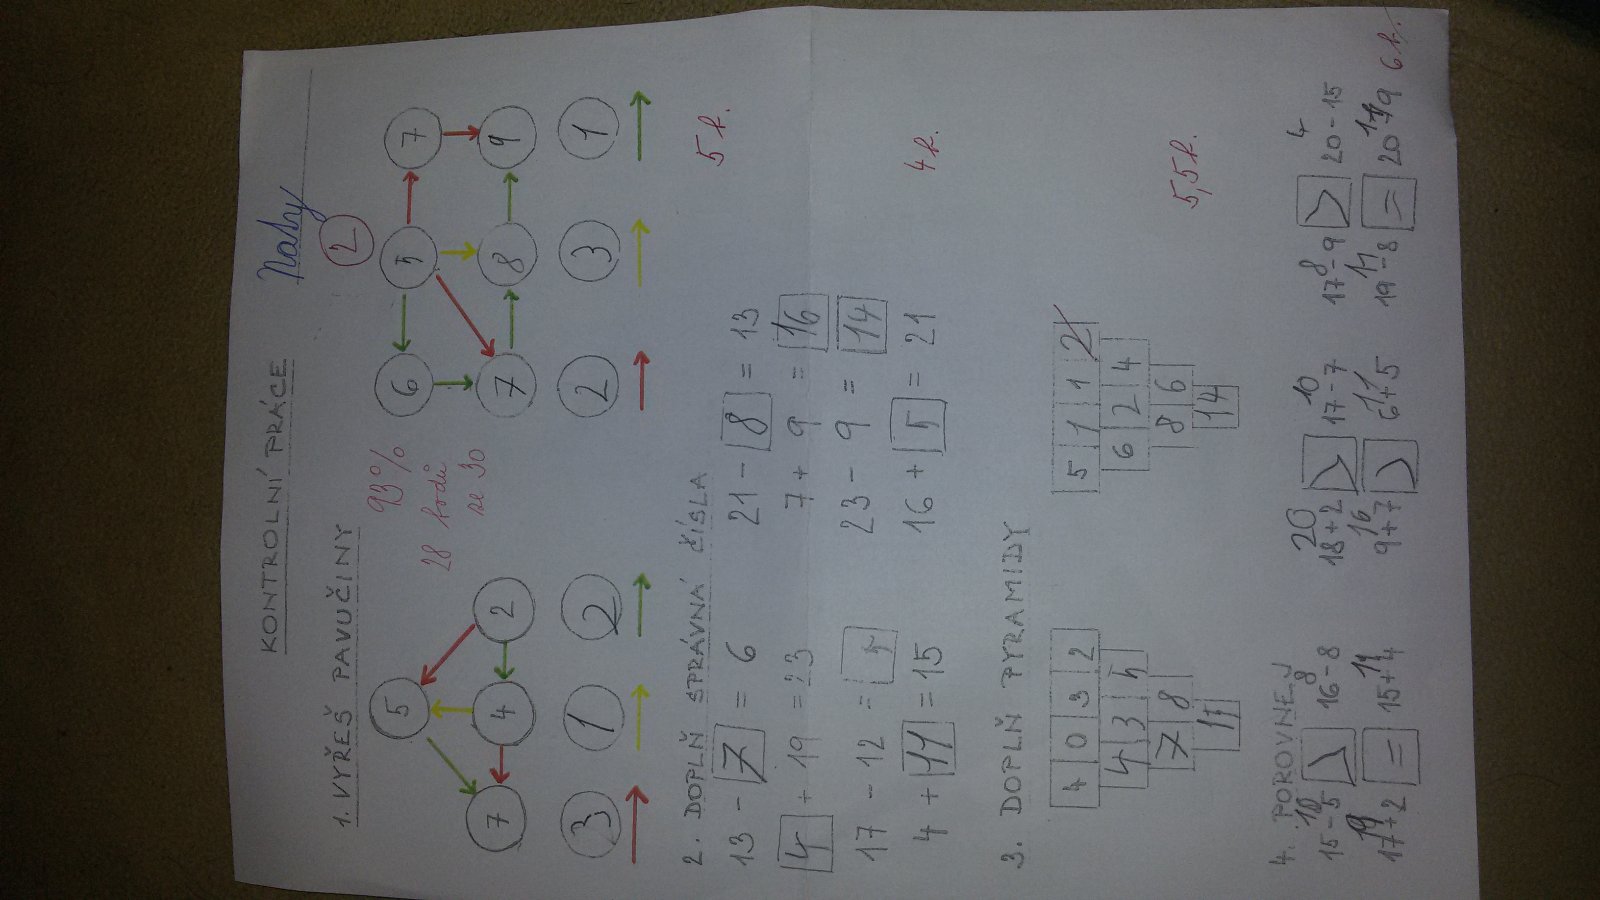 KONTROLNÍ PRÁCE
Naty
2
1. VYŘEŠ PAVUČINY
93%
28 bodů
ze 30
5 6 5 7
7 4 2 7 8 9
3 1 2 2 3 1
2. DOPLŇ SPRÁVNÁ ČÍSLA 5 b.
13 - 7 = 6 21 - 8 = 13
4 + 19 = 23 7 + 9 = 16
17 - 12 = 5 23 - 9 = 14
4 + 11 = 15 16 + 5 = 21
4 b.
3. DOPLŇ PYRAMIDY
4 0 3 2 5 1 1 2
4 3 5 6 2 4
7 8 8 6
11 14
5,5 b.
4. POROVNEJ
10 8 20 10 8 4
15 - 5 > 16 - 8 18 + 2 > 17 - 7 17 - 9 > 20 - 15
19 11 16 11 11 11
17 + 2 = 15 + 4 9 + 7 > 6 + 5 19 - 8 = 20 - 9
6 b.